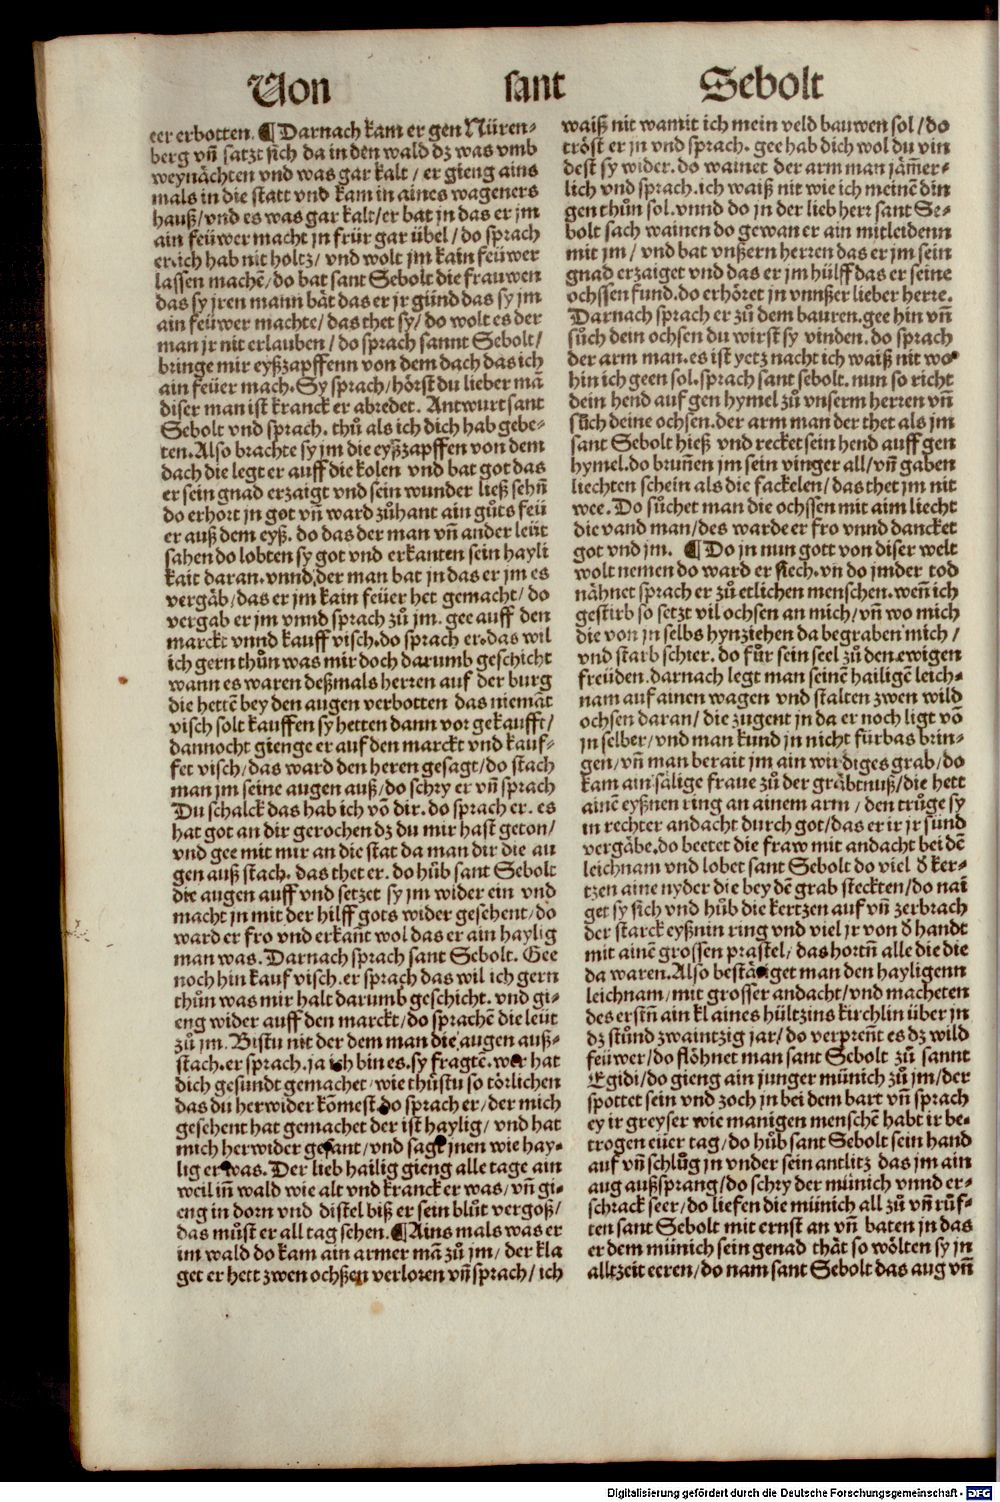 Von sant Sebolt
eer erbotten. ¶ Darnach kam er gen Nüren-
berg vñ satzt sich da in den wald dz was vmb
weynächten vnd was gar kalt / er gieng ains
mals in die statt vnd kam in aines wageners
hauß/ vnd es was gar kalt/ er bat in das er jm
ain feüwer macht jn frür gar übel / do sprach
er. ich hab nit holtz / vnd wolt jm kain feüwer
lassen machē/ do bat sant Sebolt die frauwen
das sy jren mann bät das er jr günd das sy jm
ain feüwer machte/ das thet sy/ do wolt es der
man jr nit erlauben / do sprach sannt Sebolt/
bringe mir eyßzapffenn von dem dach das ich
ain feüer mach. Sy sprach/ hörst du lieber mā
diser man ist kranck er abredet. Antwurt sant
Sebolt vnd sprach. thů als ich dich hab gebe-
ten. Also brachte sy jm die eyßzapffen von dem
dach die legt er auff die kolen vnd bat got das
er sein gnad erzaigt vnd sein wunder ließ sehñ
do erhort in got vñ ward zůhant ain gůts feü
er auß dem eyß. do das der man vñ ander leüt
sahen do lobten sy got vnd erkanten sein hayli
kait daran. vnnd der man bat jn das er jm es
vergäb/ das er jm kain feüer het gemacht/ do
vergab er jm vnnd sprach zů jm. gee auff den
marckt vnnd kauff visch. do sprach er. das wil
ich gern thůn was mir doch darumb geschicht
wann es waren deßmals herren auf der burg
die hettē bey den augen verbotten das niemāt
visch solt kauffen sy hetten dann vor gekaufft/
dannocht gienge er auf den marckt vnd kauf-
fet visch/ das ward den heren gesagt/ do stach
man jm seine augen auß/ do schry er vñ sprach
Du schalck das hab ich vō dir. do sprach er. es
hat got an dir gerochen dz du mir hast geton/
vnd gee mit mir an die stat da man dir die au
gen auß stach. das thet er. do hůb sant Sebolt
die augen auff vnd setzet sy jm wider ein vnd
macht jn mit der hilff gots wider gesehent/ do
ward er fro vnd erkañt wol das er ain haylig
man was. Darnach sprach sant Sebolt. Gee
noch hin kauf visch. er sprach das wil ich gern
thůn was mir halt darumb geschicht. vnd gi-
eng wider auff den marckt/ do sprachē die leüt
zů jm. Bistu nit der dem man die augen auß-
stach. er sprach. ja ich bin es. sy fragtē. wer hat
dich gesundt gemachet/ wie thůstu so törlichen
das du herwider kōmest. do sprach er/ der mich
gesehent hat gemachet der ist haylig/ vnd hat
mich herwider gesant/ vnd sagt jnen wie hay-
lig er was. Der lieb hailig gieng alle tage ain
weil iñ wald wie alt vnd kranck er was/ vñ gi-
eng in dorn vnd distel biß er sein blůt vergoß/
das můst er all tag sehen. ¶ Ains mals was er
im wald do kam ain armer mā zů jm/ der kla
get er hett zwen ochßen verloren vñ sprach/ ich
waiß nit wamit ich mein veld bauwen sol / do
tröst er jn vnd sprach. gee hab dich wol du vin
dest sy wider. do wainet der arm man jām̃er-
lich vnd sprach. ich waiß nit wie ich meinē din
gen thůn sol. vnnd do jn der lieb herr sant Se-
bolt sach wainen do gewan er ain mitleidenn
mit jm / vnd bat vnßern herren das er jm sein
gnad erzaiget vnd das er jm hülff das er seine
ochssen fund. do erhöret jn vnnßer lieber herre.
Darnach sprach er zů dem bauren. gee hin vñ
sůch dein ochsen du wirst sy vinden. do sprach
der arm man. es ist yetz nacht ich waiß nit wo
hin ich geen sol. sprach sant sebolt. nun so richt
dein hend auf gen hymel zů vnserm herren vñ
sůch deine ochsen. der arm man der thet als jm
sant Sebolt hieß vnd recket sein hend auff gen
hymel. do bruñen jm sein vinger all/ vñ gaben
liechten schein als die fackelen/ das thet jm nit
wee. Do sůchet man die ochssen mit aim liecht
die vand man/ des warde er fro vnnd dancket
got vnd jm. ¶ Do jn nun gott von diser welt
wolt nemen do ward er siech. vn do jmder tod
nähnet sprach er zů etlichen menschen. weñ ich
gestirb so setzt vil ochsen an mich/ vñ wo mich
die von jn selbs hynziehen da begraben mich /
vnd starb schier. do für sein seel zů den ewigen
freüden. darnach legt man seinē hailigē leich-
nam auf ainen wagen vnd stalten zwen wild
ochsen daran/ die zugent jn da er noch ligt vō
jn selber/ vnd man kund jn nicht fürbas brin-
gen/ vñ man berait jm ain wirdiges grab/ do
kam ain sälige fraue zů der gräbtnuß/ die hett
ainē eyßnen ring an ainem arm / den trůge sy
in rechter andacht durch got/ das er ir jr sünd
vergäbe. do beetet die fraw mit andacht bei dē
leichnam vnd lobet sant Sebolt do viel d̄ ker-
tzen aine nyder die bey dē grab steckten/ do nai
get sy sich vnd hůb die kertzen auf vñ zerbrach
der starck eyßnin ring vnd viel jr von d̄ handt
mit ainē grossen prastel/ das hortñ alle die die
da waren. Also bestätiget man den hayligenn
leichnam/ mit grosser andacht/ vnd macheten
des erstñ ain klaines hültzins kirchlin über jn
dz stůnd zwaintzig jar/ do verpreñt es dz wild
feüwer/ do flöhnet man sant Sebolt zů sannt
Egidi/ do gieng ain junger münich zů jm/ der
spottet sein vnd zoch jn bei dem bart vñ sprach
ey ir greyser wie manigen menschē habt ir be-
trogen eüer tag/ do hůb sant Sebolt sein hand
auf vñ schlůg jn vnder sein antlitz das jm ain
aug außsprang/ do schry der münich vnnd er-
schrack seer/ do liefen die münich all zů vñ růf-
ten sant Sebolt mit ernst an vñ baten jn das
er dem münich sein genad thät so wölten sy jn
alltzeit eeren/ do nam sant Sebolt das aug vñ
Digitalisierung gefördert durch die Deutsche Forschungsgemeinschaft - DFG